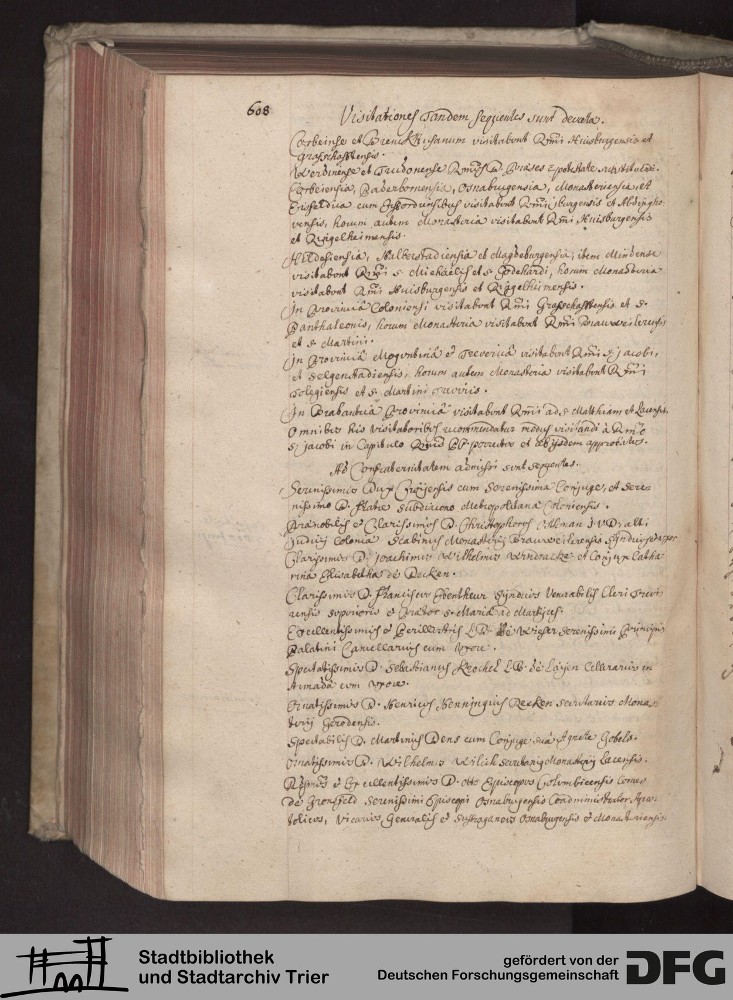 608
Visitationes tandem sequentes sunt decretæ.
Corbeiense et visitabunt Rmi Huisburgensis et
Graffschafftensis.
Werdinense et Trudonense Rmus D. Præses potestate substituendi.
Corbeiensia, Paderbornensia, Osnabrugensia, Monasteriensia, et
cum visitabunt Rmi Iburgensis et Abdingho-
vensis, horum autem Monasteria visitabunt Rmi Huisburgensis
et Ringelheimensis.
Hildesiensia, Halberstadiensia et Magdeburgensia, item Mindense
visitabunt Rmi S. Michaelis et S. Godehardi, horum Monasteria
visitabunt Rmi Huisburgensis et Ringelheimensis.
In Provincia Coloniensi visitabunt Rmi Graffschafftensis et S.
Panthaleonis, horum Monasteria visitabunt Rmi Brauweilerensis
et S. Martini.
In Provincia Moguntina et Treverica visitabunt Rmi S. Jacobi,
et Selgenstadiensis, horum autem Monasteria visitabunt Rmi
Tolegiensis et S. Martini Treviris.
In Brabantica Provincia visitabunt Rmi ad S. Matthiam et Lacensis.
Omnibus his visitatoribus recommendatur modus visitandi à Rmo
S. Jacobi in Capitulo porrectus et ab ijsdem approbatus.
Ad Confraternitatem admissi sunt sequentes.
Serenissimus Dux Croijensis cum Serenissima Conjuge, et Sere-
nissimo D. Fratre Subdiacono Metropolitanæ Coloniensis.
Prænobilis et Clarissimus D. Christophorus Ulman J.U.D. alti
Judicij Coloniæ Scabinus Monasterij Brauweilerensis Syndicus
Clarissimus D. Joachimus Wilhelmus et Conjux Catha-
rina Elisabetha de Decken.
Clarissimus D. Franciscus Ebentheur Syndicus Venerabilis Cleri Trevi-
rensis superioris et Prætor S. Mariæ ad Martyres.
Excellentissimus et Perillustris L.B. de Wieser Serenissimi Principis
Palatini Cancellarius cum Uxore.
Spectatissimus D. Sebastianus L.B. de Leyen Cellerarius in
Arnada cum Uxore.
Ornatissimus D. Henricus Henningius Recken Secretarius Mona-
sterij Gerodensis.
Spectabilis D. Martinus Dens cum Conjuge sua Agnete Gobels.
Ornatissimus D. Wilhelmus Wilich Secretarius Monasterij Lacensis.
Rmus et Excellentissimus D. Otto Episcopus Columbricensis Comes
de Gronsfeld Serenissimi Episcopi Osnabrugensis Condministrator, Apos-
tolicus, Vicarius Generalis et Suffraganeus Osnabrugensis et Monasteriensis.
Stadtbibliothek
und Stadtarchiv Trier
gefördert von der
Deutschen Forschungsgemeinschaft
DFG